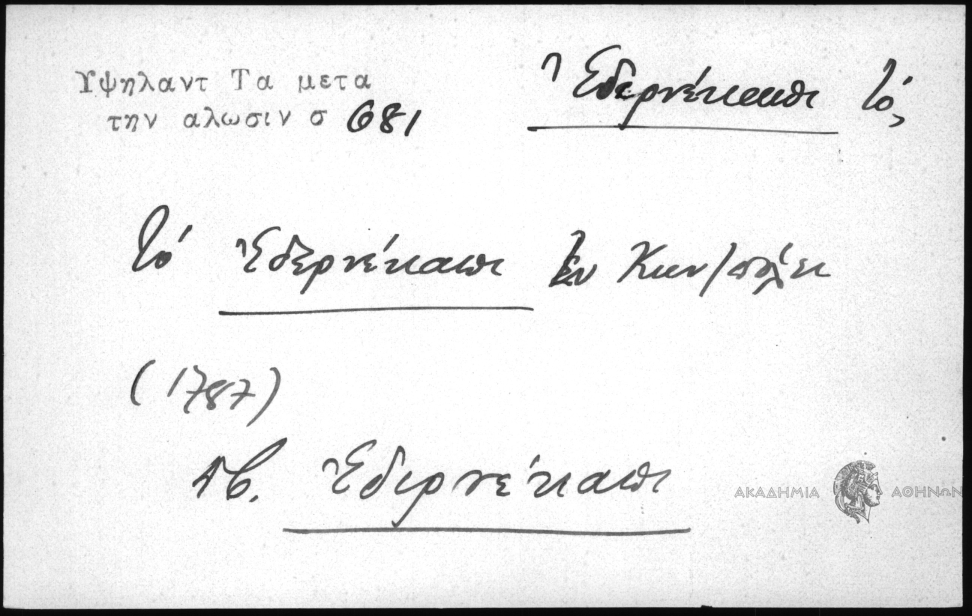 Υψηλαντ Τα μετα
την αλωσιν σ 681
Ἐδερνέκαπι τό,
τό Ἐδερνέκαπι ἐν Κων/πόλει
(1787)
πβ. Ἐδιρνέκαπι
ΑΚΑΔΗΜΙΑ ΑΘΗΝΩΝ